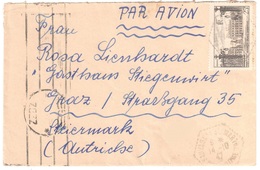 PAR AVION
Frau
Rosa Lienhardt
"Gasthaus Stegenwirt"
Graz / Straßgang 35
Steiermark
(Autriche)